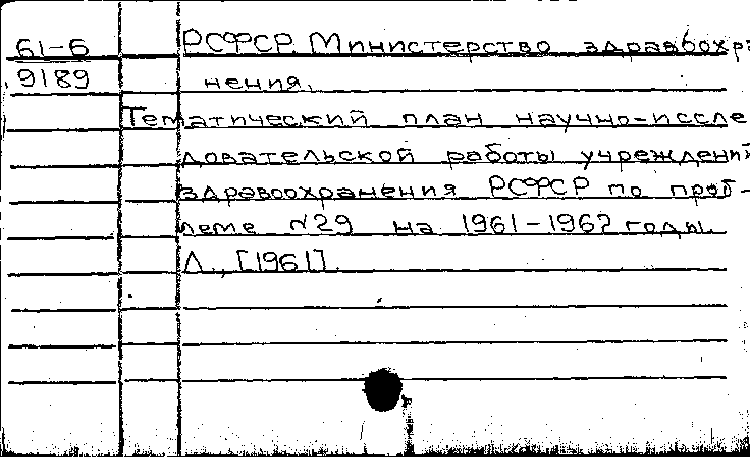 61-6 РСФСР. Министерство здравоохра
9189 нения.
Тематический план научно-иссле
довательской работы учреждений
здравоохранения РСФСР по проб-
леме №29 на 1961-1962 годы.
Л., [1961].